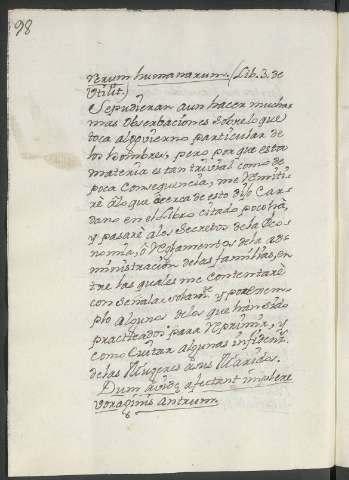 98
rerum humanarum. (Lib. 3. de
Utilit.)
Se pudieran aun hacer muchas
mas Observaciones Sobre lo que
toca al govierno particular de
los hombres, pero por que esta
materia es tan trivial como de
poca Consequencia, me remiti
rè à lo que acerca de esto dijo Car
dano en el Libro citado poco hà,
y pasarè a los Secretos de la Eco
nomia, ò Reglamentos de la ad
ministracion de las familias, en
tre las quales me contentarè
con Señalar y por exem
plo algunos de los que han sido
practicados para reprimir, y
como Evitar algunas infidend.
de las Mugeres à sus Maridos.
Dum avidę afectant implere
voraginis antrum.